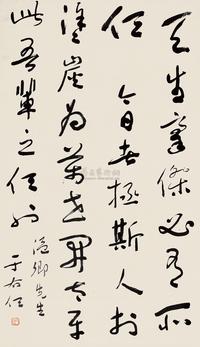 天生豪傑必有所
任今日者極斯人於
塗炭為萬世開太平
此吾輩之任也
溫卿先生
于右任